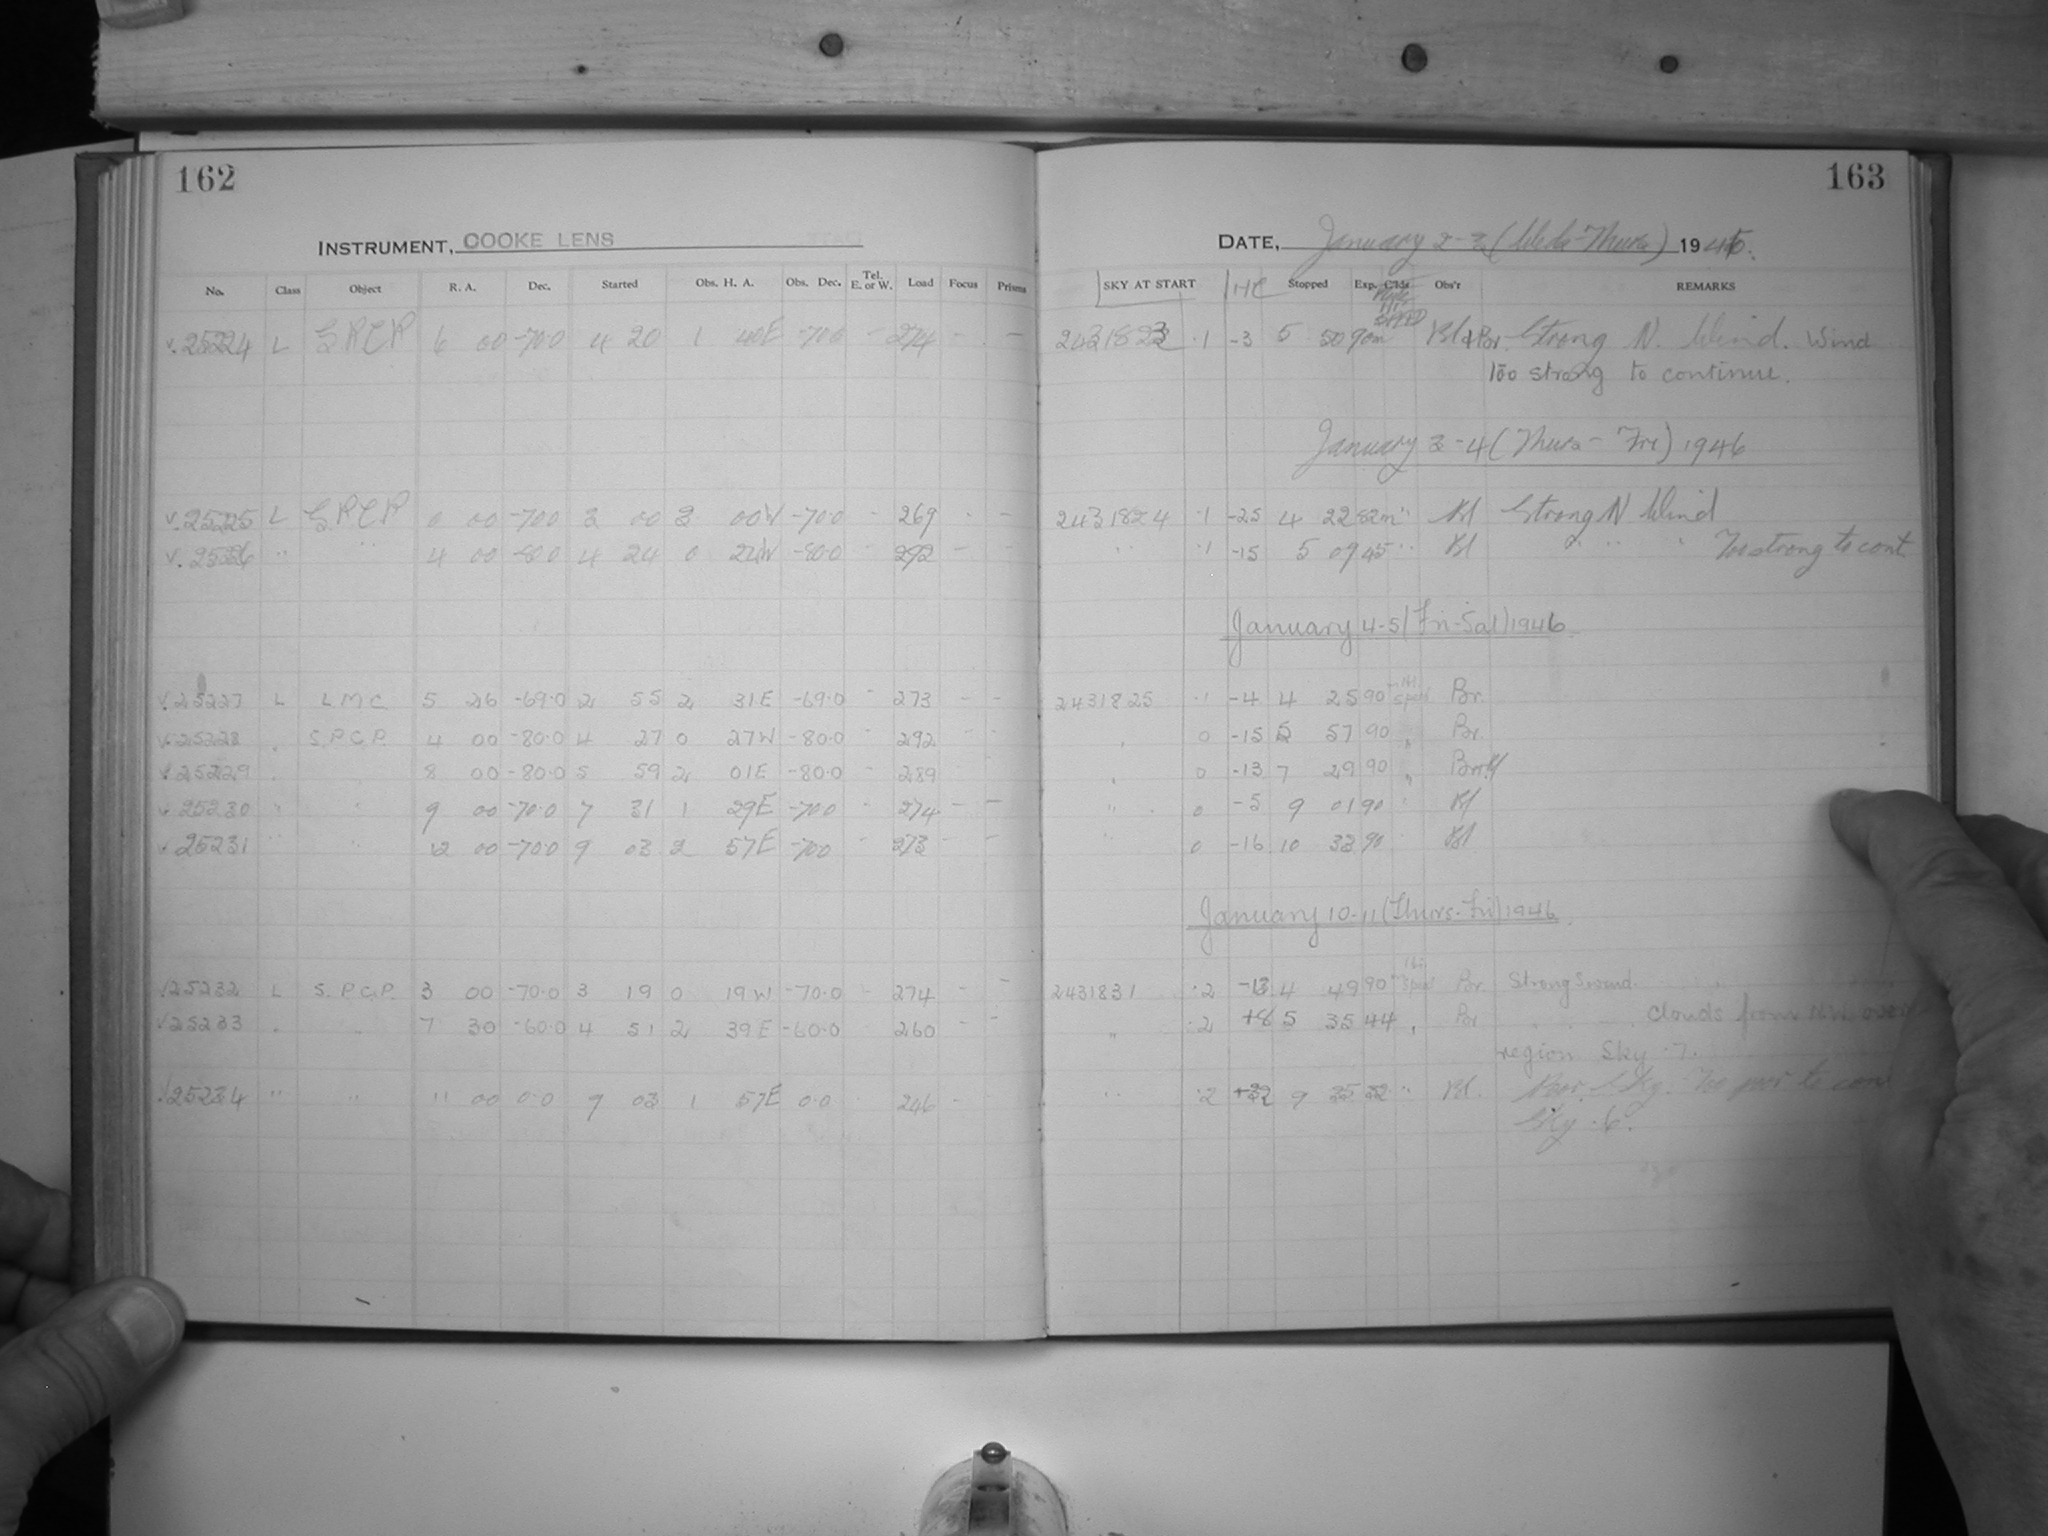 162
INSTRUMENT, COOKE LENS
No. Class Object R. A. Dec. Started Obs. H. A. Obs. Dec. Tel. E. or W. Load Focus Prisms
v. 25224 L S.P.C.P. 6 00 -70.0 4 20 1 40E -70.0 - 274 - -
v. 25225 L S.P.C.P. 0 00 -70.0 3 00 3 00W -70.0 - 269 - -
v. 25226 " " 4 00 -80.0 4 24 0 24W -80.0 - 292 - -
v. 25227 L L M C 5 26 -69.0 2 55 2 31E -69.0 - 273 - -
v. 25228 S.P.C.P. 4 00 -80.0 4 27 0 27W -80.0 - 292 - -
v. 25229 8 00 -80.0 5 59 2 01E -80.0 - 289 - -
v. 25230 " " 9 00 -70.0 7 31 1 29E -70.0 - 274 - -
v. 25231 " " 12 00 -70.0 9 03 2 57E -70.0 - 273 - -
v 25232 L S.P.C.P. 3 00 -70.0 3 19 0 19W -70.0 - 274 - -
v 25233 " " 7 30 -60.0 4 51 2 39E -60.0 260 - -
v 25234 " " 11 00 0.0 9 03 1 57E 0.0 246 -
163
DATE, January 2-3 (Weds-Thurs) 1946.
SKY AT START HC Stopped Exp. Obs'r REMARKS
2431823 .1 -3 5 50 90m Bl & Br. Strong N. Wind. Wind
too strong to continue.
January 3-4 (Thurs - Fri) 1946
2431824 .1 -25 4 22 82m " Bl Strong N Wind
" .1 -15 5 09 45 " Bl " " " Too strong to cont
January 4-5 (Fri-Sat) 1946
2431825 .1 -4 4 25 90 Br.
" 0 -15 5 57 90 " Br.
" 0 -13 7 29 90 " Br&Bl
" 0 -5 9 01 90 " Bl
" 0 -16 10 33 90 " Bl
January 10-11 (Thurs-Fri) 1946
2431831 .2 -13 4 49 90 Br. Strong S wind
" .2 +8 5 35 44 " Br " " Clouds from N.W. over
region Sky .7.
" .2 +32 9 35 32 " Bl. Poor Sky. Too poor to con
Sky .6.